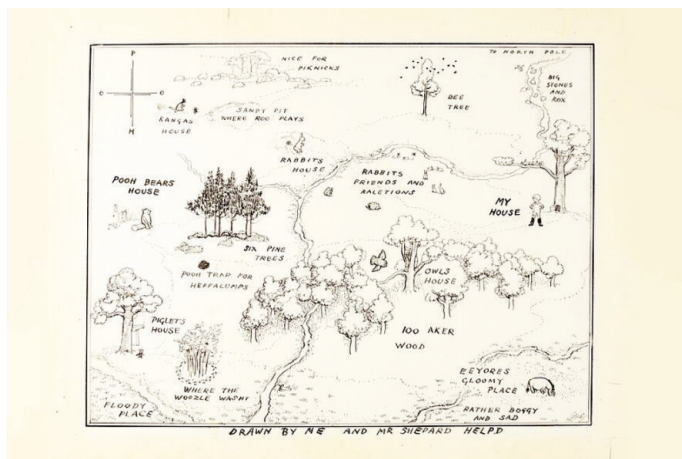 P
O O
H
NICE FOR
PIKNICKS
TO NORTH POLE
BIG
STONES
AND
ROX
BEE
TREE
KANGAS
HOUSE
SANDY PIT
WHERE ROO PLAYS
RABBITS
HOUSE
RABBITS
FRIENDS AND
RALETIONS
POOH BEARS
HOUSE
MY
HOUSE
SIX PINE
TREES
POOH TRAP FOR
HEFFALUMPS
OWLS
HOUSE
PIGLETS
HOUSE
100 AKER
WOOD
WHERE THE
WOOZLE WASNT
EEYORES
GLOOMY
PLACE
FLOODY
PLACE
RATHER BOGGY
AND SAD
DRAWN BY ME AND MR SHEPARD HELPD